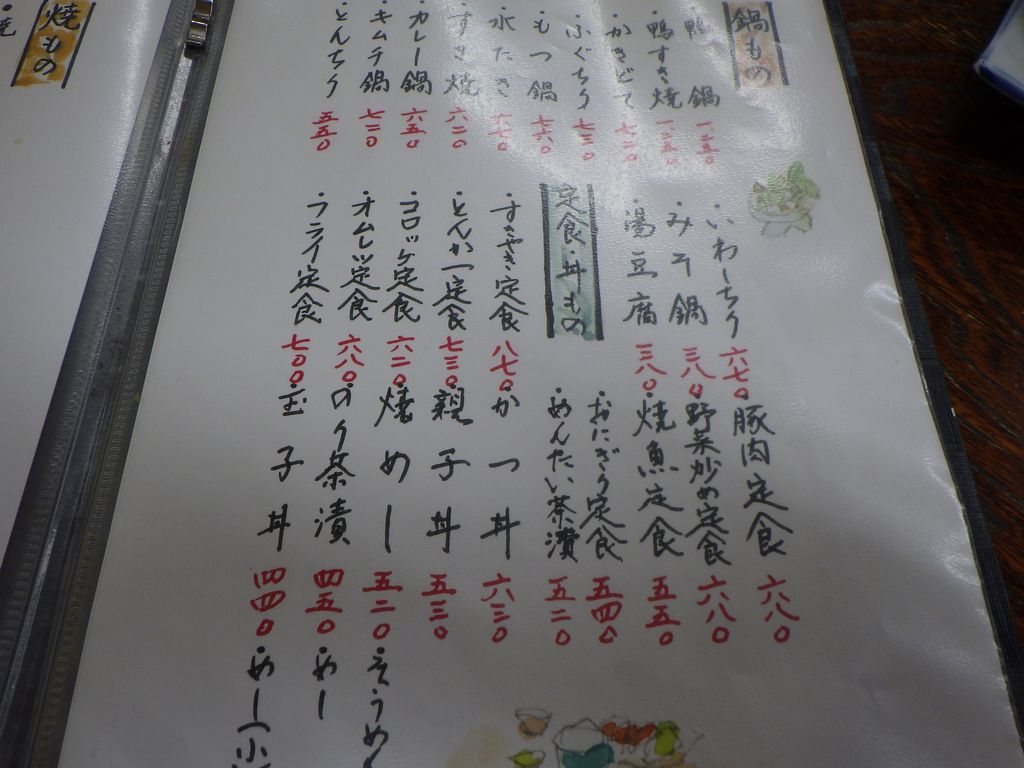 鍋もの
・鴨鍋 一、一五〇
・鴨すき焼
・かきどて 七二〇
・ふぐちり 七三〇
・もつ鍋 七六〇
・水たき 六七〇
・すき焼 六二〇
・カレー鍋 六五〇
・キムチ鍋 七二〇
・とんちり 五五〇
・いわしちり 六七〇
・みそ鍋 三八〇
・湯豆腐 三八〇
定食・丼もの
・すきやき定食 八七〇
・とんかつ定食 七三〇
・コロッケ定食 六二〇
・オムレツ定食 六八〇
・フライ定食 七〇〇
・豚肉定食 六八〇
・野菜炒め定食 六八〇
・焼魚定食 五五〇
・おにぎり定食 五四〇
・めんたい茶漬 五二〇
・かつ丼 六三〇
・親子丼 五三〇
・焼めし 五二〇
・のり茶漬 四五〇
・玉子丼 四四〇
・そうめん
・めし
・めし(小
焼もの
・焼